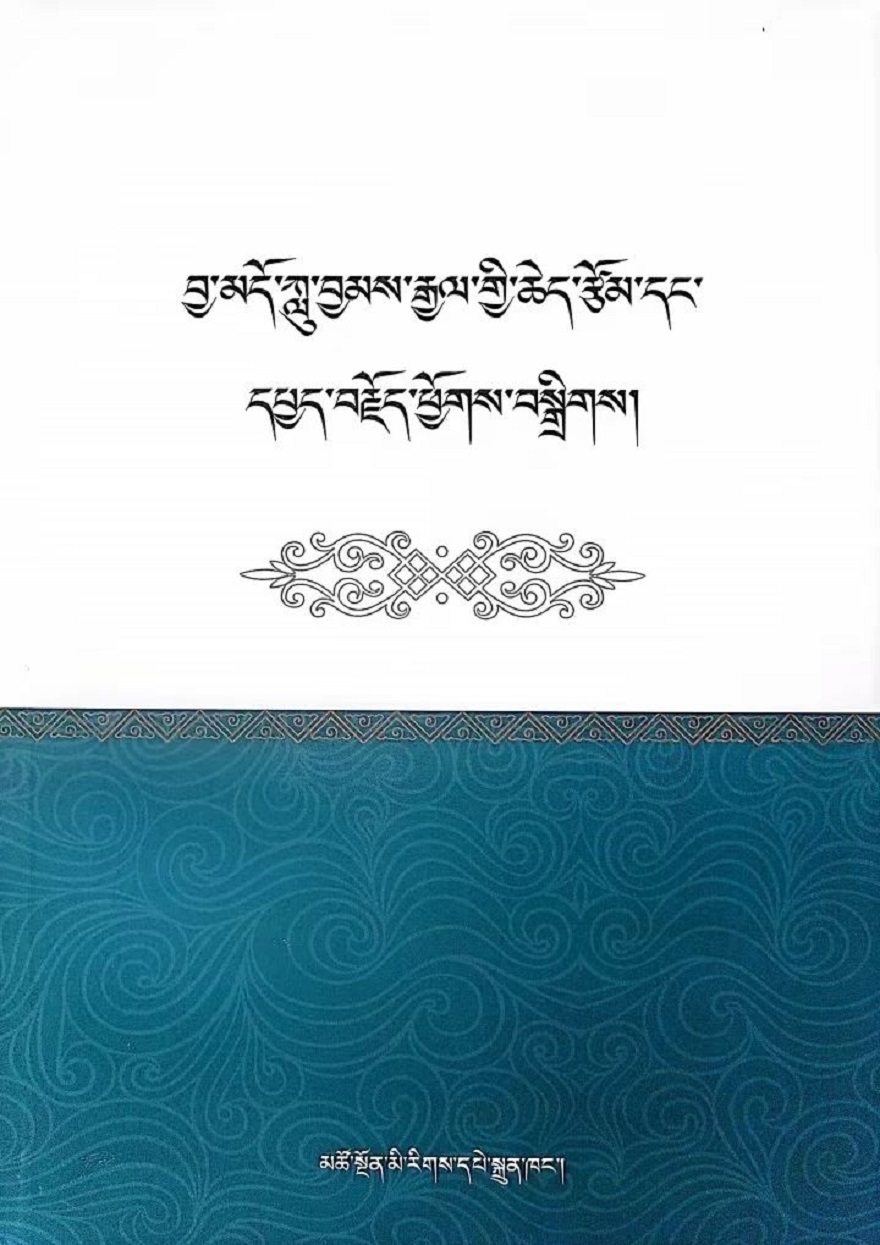 བྱ་མདོ་ཀླུ་བྱམས་རྒྱལ་གྱི་ཆེད་རྩོམ་དང་
དཔྱད་བརྗོད་ཕྱོགས་བསྒྲིགས།
མཚོ་སྔོན་མི་རིགས་དཔེ་སྐྲུན་ཁང་།